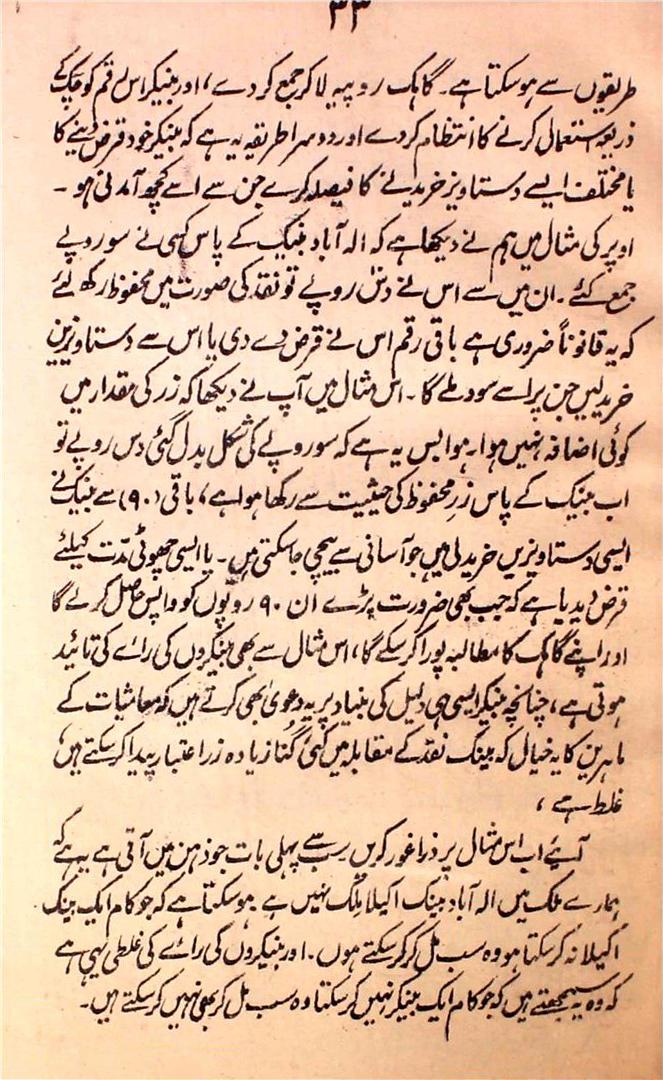 ۳۳
طریقوں سے ہوسکتا ہے۔ گاہک روپیہ لاکر جمع کردے، اور بینکر اس رقم کو چک کے
ذریعہ استعمال کرنے کا انتظام کردے اور دوسرا طریقہ یہ ہے کہ بینکر خود قرض دینے کا
یا مختلف ایسے دستاویز خریدنے کا فیصلہ کرے جن سے اسے کچھ آمدنی ہو۔
اوپر کی مثال میں ہم نے دیکھا ہے کہ الہ آباد بینک کے پاس کسی نے سو روپے
جمع کئے۔ ان میں سے اس نے دس روپے تو نقد کی صورت میں محفوظ رکھ لئے
کہ یہ قانوناً ضروری ہے باقی رقم اس نے قرض دے دی یا اس سے دستاویزیں
خریدلیں جن پر اسے سود ملے گا۔ اس مثال میں آپ نے دیکھا کہ زر کی مقدار میں
کوئی اضافہ نہیں ہوا۔ ہوا بس یہ ہے کہ سو روپے کی شکل بدل گئی دس روپے تو
اب بینک کے پاس زرِ محفوظ کی حیثیت سے رکھا ہوا ہے، باقی (۹۰) سے بینک نے
ایسی دستاویزیں خریدلی ہیں جو آسانی سے بیچی جاسکتی ہیں۔ یا ایسی چھوٹی مدّت کیلئے
قرض دیدیا ہے کہ جب بھی ضرورت پڑے ان ۹۰ روپوں کو واپس حاصل کرلے گا
اور اپنے گاہک کا مطالبہ پورا کرسکے گا، اس مثال سے بھی بینکروں کی رائے کی تائید
ہوتی ہے، چنانچہ بینکر ایسی ہی دلیل کی بنیاد پر یہ دعویٰ بھی کرتے ہیں کہ معاشیات کے
ماہرین کا یہ خیال کہ بینک نقد کے مقابلہ میں کئی گُنا زیادہ زرِ اعتبار پیدا کرسکتے ہیں
غلط ہے،
آئیے اب اس مثال پر ذرا غور کریں سب سے پہلی بات جو ذہن میں آتی ہے یہ ہے کہ
ہمارے ملک میں الہ آباد بینک اکیلا بنک نہیں ہے۔ ہوسکتا ہے کہ جو کام ایک بینک
اکیلا نہ کرسکتا ہو وہ سب مل کر کرسکتے ہوں۔ اور بینکروں کی رائے کی غلطی یہی ہے
کہ وہ یہ سمجھتے ہیں کہ جو کام ایک بینکر نہیں کرسکتا وہ سب مل کر بھی نہیں کرسکتے ہیں۔